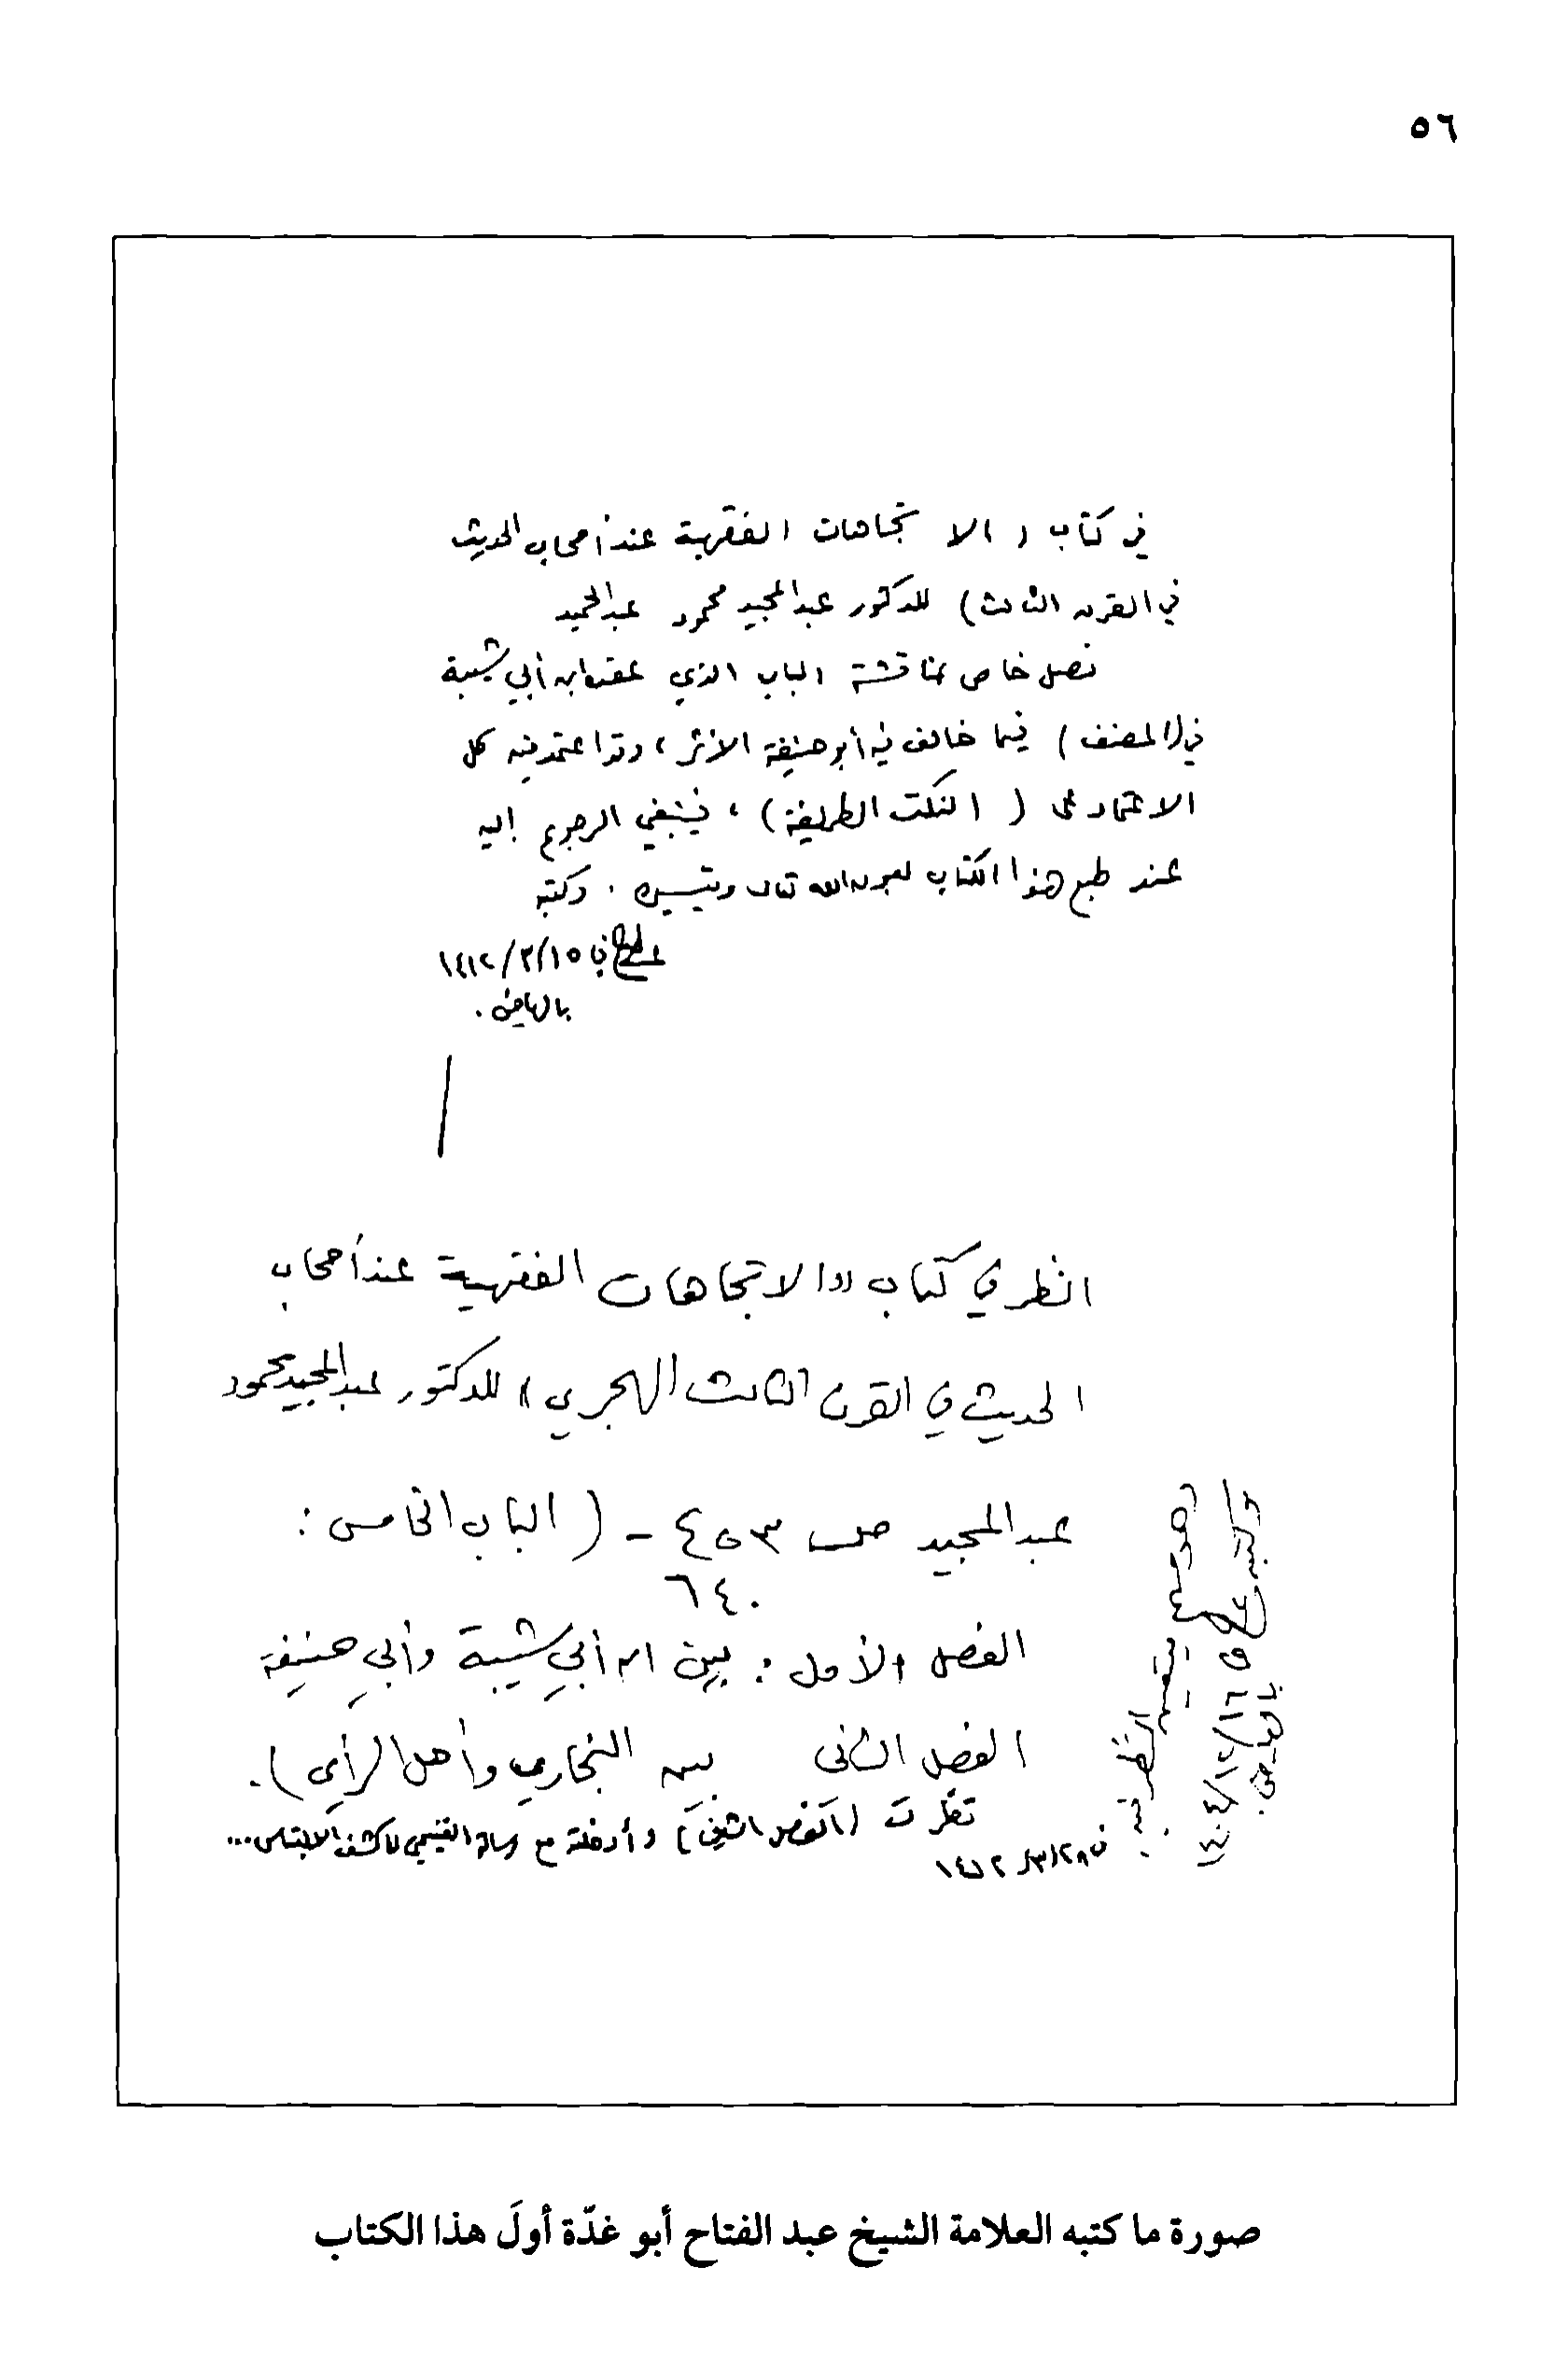 ٥٦
في كتاب ( الاتجاهات الفقهية عند أصحاب الحديث
في القرن الثالث ) للدكتور عبد المجيد محمود عبد المجيد
فصل خاص بمناقشة الباب الذي عقده ابن أبي شيبة
في ( المصنف ) فيما خالف فيه أبو حنيفة الأثر ، وقد اعتمد فيه كل
الاعتماد على ( النكت الطريفة ) ، فينبغي الرجوع إليه
عند طبع هذا الكتاب بعون الله تعالى وتيسيره . وكتبه
في ١٥/٣/١٤١٢
بالرياض .
انظر في كتاب «الاتجاهات الفقهية عند أصحاب
الحديث في القرن الثالث الهجري» للدكتور عبد المجيد محمود
عبد المجيد ص ٤٥٣ - ( الباب الخامس :
٦٤٠
الفصل الأول : بين ابن أبي شيبة وأبي حنيفة
الفصل الثاني بين البخاري وأهل الرأي ) .
نظرت ( الفصل الثاني ) وأدخلته مع رسالة الغنيمي كشف الالتباس ...
في ٢٨/٣/١٤١٢
وهو مهم يتعين النظر فيه .
وكتبه
في ١٦/١٢/١٤٠٤
بالرياض .
صورة ما كتبه العلامة الشيخ عبد الفتاح أبو غدّة أولَ هذا الكتاب